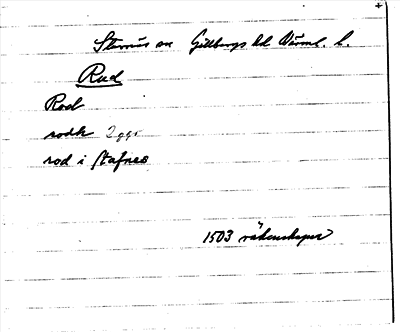 Stavnäs sn Gillbergs hd Värml. l.
Rud
Rod
rodh 2 ggr
rod i stafnes
1503 räkenskaper